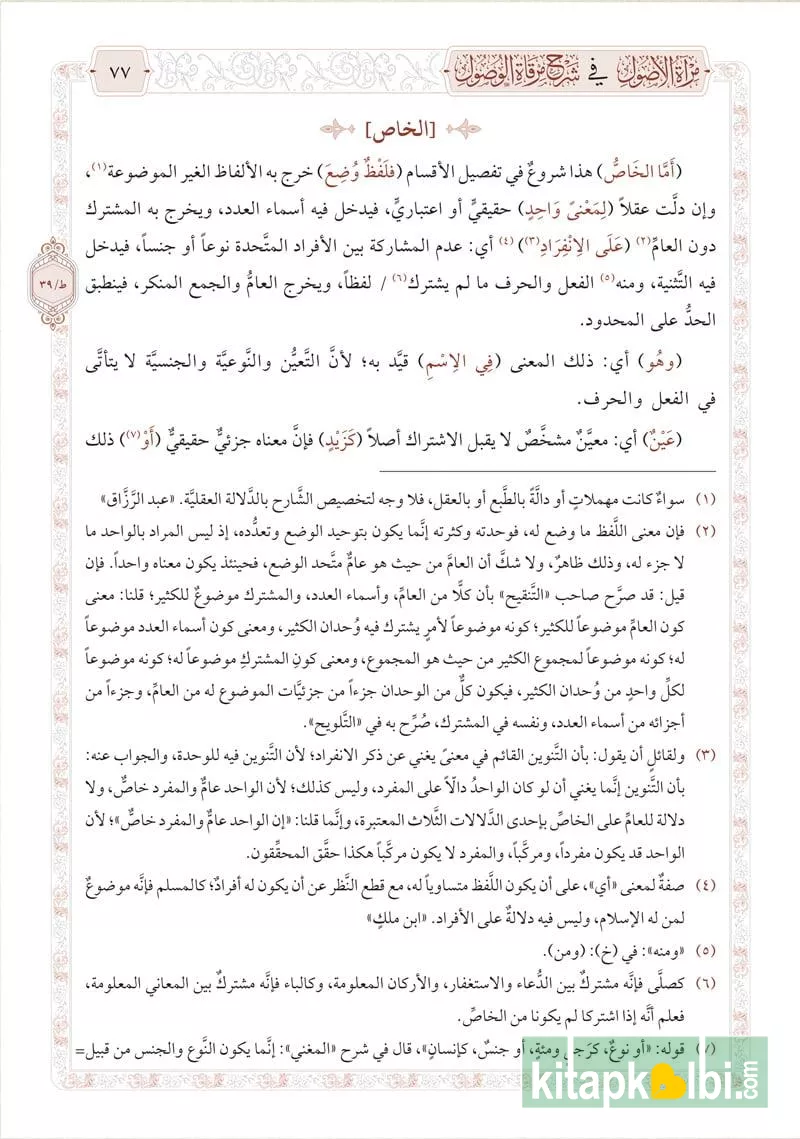 مرآة الأصول في شرح مرقاة الوصول
٧٧
[الخاص]
(أَمَّا الخَاصُّ) هذا شروعٌ في تفصيل الأقسام (فلَفْظٌ وُضِعَ) خرج به الألفاظ الغير الموضوعة(١)،
وإن دلَّت عقلاً (لِمَعْنىً وَاحِدٍ) حقيقيٍّ أو اعتباريٍّ، فيدخل فيه أسماء العدد، ويخرج به المشترك
دون العامِّ(٢) (عَلَى الاِنْفِرَادِ(٣)) (٤) أي: عدم المشاركة بين الأفراد المتَّحدة نوعاً أو جنساً، فيدخل
فيه التَّثنية، ومنه(٥) الفعل والحرف ما لم يشترك(٦) / لفظاً، ويخرج العامُّ والجمع المنكر، فينطبق
ط/٣٩
الحدُّ على المحدود.
(وهُو) أي: ذلك المعنى (فِي الاِسْمِ) قيَّد به؛ لأنَّ التَّعيُّن والنَّوعيَّة والجنسيَّة لا يتأتَّى
في الفعل والحرف.
(عَيْنٌ) أي: معيَّنٌ مشخَّصٌ لا يقبل الاشتراك أصلاً (كَزَيْدٍ) فإنَّ معناه جزئيٌّ حقيقيٌّ (أَوْ(٧)) ذلك
(١) سواءٌ كانت مهملاتٍ أو دالَّةً بالطَّبع أو بالعقل، فلا وجه لتخصيص الشَّارح بالدَّلالة العقليَّة. «عبد الرَّزَّاق»
(٢) فإن معنى اللَّفظ ما وضع له، فوحدته وكثرته إنَّما يكون بتوحيد الوضع وتعدُّده، إذ ليس المراد بالواحد ما
لا جزء له، وذلك ظاهرٌ، ولا شكَّ أن العامَّ من حيث هو عامٌّ متَّحد الوضع، فحينئذ يكون معناه واحداً. فإن
قيل: قد صرَّح صاحب «التَّنقيح» بأن كلًّا من العامِّ، وأسماء العدد، والمشترك موضوعٌ للكثير؛ قلنا: معنى
كون العامِّ موضوعاً للكثير؛ كونه موضوعاً لأمرٍ يشترك فيه وُحدان الكثير، ومعنى كون أسماء العدد موضوعاً
له؛ كونه موضوعاً لمجموع الكثير من حيث هو المجموع، ومعنى كونِ المشتركِ موضوعاً له؛ كونه موضوعاً
لكلِّ واحدٍ من وُحدان الكثير، فيكون كلٌّ من الوحدان جزءاً من جزئيَّات الموضوع له من العامِّ، وجزءاً من
أجزائه من أسماء العدد، ونفسه في المشترك، صُرِّح به في «التَّلويح».
(٣) ولقائلٍ أن يقول: بأن التَّنوين القائم في معنىً يغني عن ذكر الانفراد؛ لأن التَّنوين فيه للوحدة، والجواب عنه:
بأن التَّنوين إنَّما يغني أن لو كان الواحدُ دالّاً على المفرد، وليس كذلك؛ لأن الواحد عامٌّ والمفرد خاصٌّ، ولا
دلالة للعامِّ على الخاصِّ بإحدى الدَّلالات الثَّلاث المعتبرة، وإنَّما قلنا: «إن الواحد عامٌّ والمفرد خاصٌّ»؛ لأن
الواحد قد يكون مفرداً، ومركَّباً، والمفرد لا يكون مركَّباً هكذا حقَّق المحقِّقون.
(٤) صفةٌ لمعنى «أي»، على أن يكون اللَّفظ متساوياً له، مع قطع النَّظر عن أن يكون له أفرادٌ؛ كالمسلم فإنَّه موضوعٌ
لمن له الإسلام، وليس فيه دلالةٌ على الأفراد. «ابن ملكٍ»
(٥) «ومنه»: في (خ): (ومن).
(٦) كصلَّى فإنَّه مشتركٌ بين الدُّعاء والاستغفار، والأركان المعلومة، وكالباء فإنَّه مشتركٌ بين المعاني المعلومة،
فعلم أنَّه إذا اشتركا لم يكونا من الخاصِّ.
(٧) قوله: «أو نوعٌ، كرَجلٍ ومئةٍ، أو جنسٌ، كإنسانٍ»، قال في شرح «المغني»: إنَّما يكون النَّوع والجنس من قبيل=
kitapkalbi.com